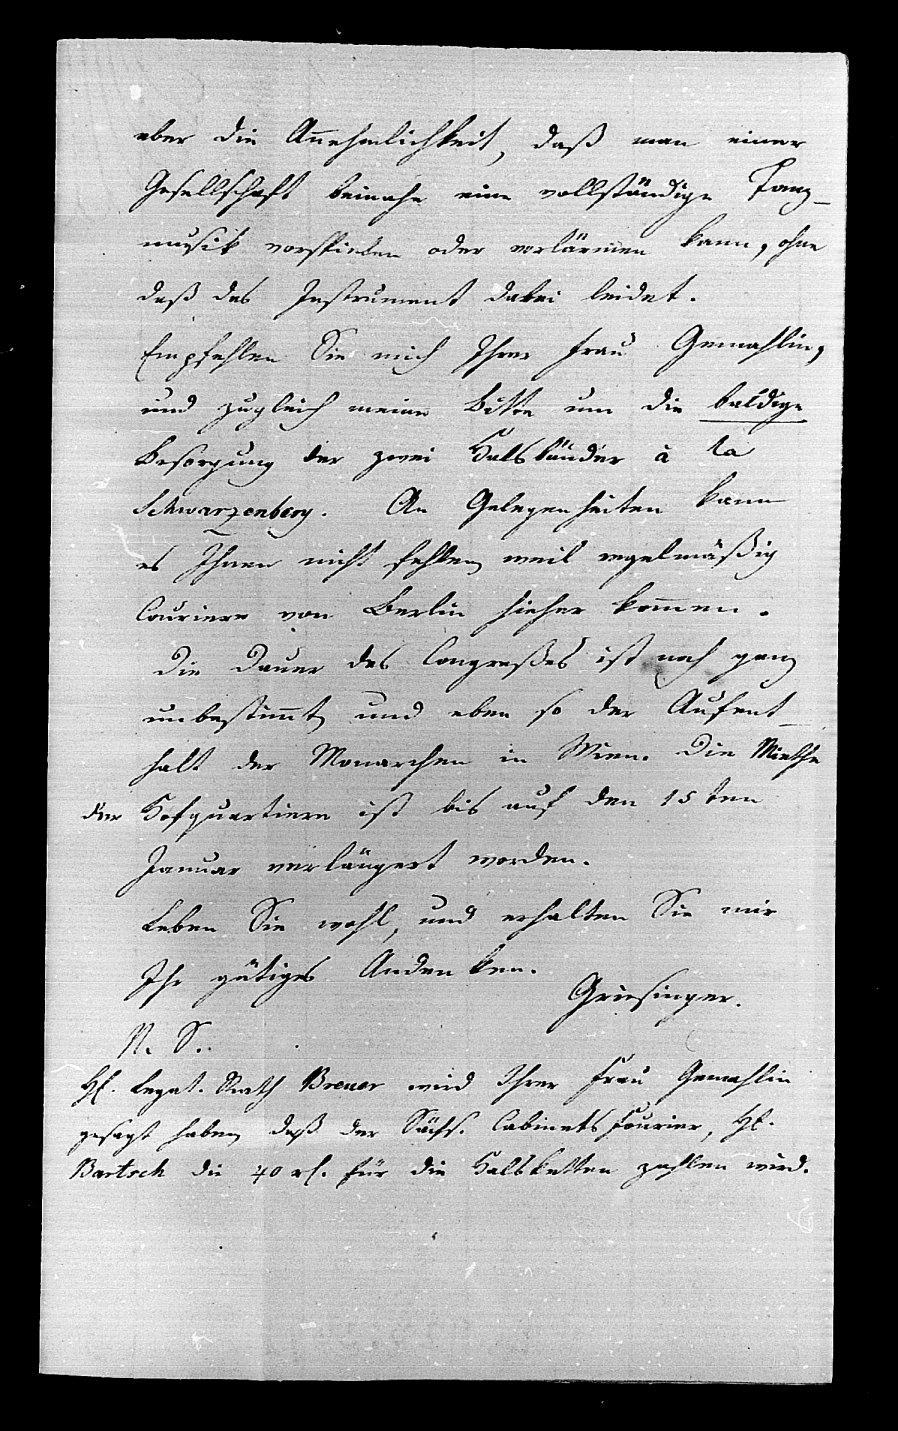 aber die Annehmlichkeit, daß man einer
Gesellschaft beinahe eine vollständige Tanz-
musik vorspielen oder vorlärmen kann, ohne
daß das Instrument dabei leidet.
Empfehlen Sie mich Ihrer Frau Gemahlin,
und zugleich meine Bitte um die baldige
Besorgung der zwei Halsbänder à la
Schwarzenberg. An Gelegenheiten kann
es Ihnen nicht fehlen weil regelmäßig
Couriere von Berlin hieher kommen.
Die Dauer des Congreßes ist noch ganz
unbestimmt und eben so der Aufent-
halt der Monarchen in Wien. Die Miethe
der Hofquartiere ist bis auf den 15ten
Januar verlängert worden.
Leben Sie wohl, und erhalten Sie mir
Ihr gütiges Andenken.
Griesinger.
N. S.
H. Legat. Rath Breuer wird Ihrer Frau Gemahlin
gesagt haben daß der Sächs. Cabinets Fourier, H.
Bartsch die 40 rh. für die Halsketten zahlen wird.